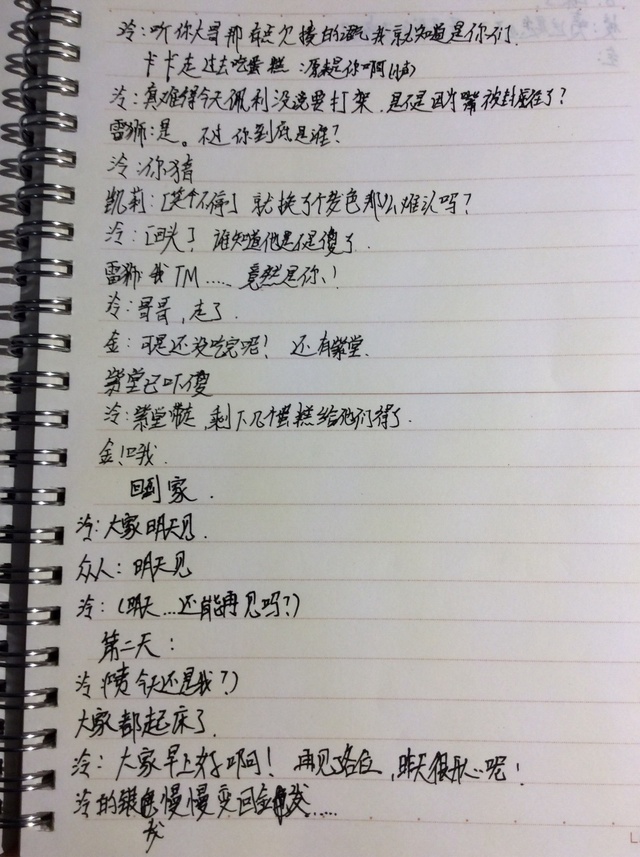 冷：听你大哥那有点欠揍的语气我就知道是你们
卡卡走过去吃蛋糕：原来是你啊(小声)
冷：真难得今天佩利没说要打架，是不是因为嘴被封住了？
雷狮：是。不过你到底是谁？
冷：你猜
凯莉：[笑个不停]就换了个发色那么难认吗？
冷：[回头]谁知道他是不是傻了.
雷狮：我TM……竟然是你！
冷：哥哥，走了.
金：可是还没吃完呢！还有紫堂.
紫堂已吓傻
冷：紫堂带走，剩下几个蛋糕给他们得了.
金：哦.
回到家.
冷：大家明天见.
众人：明天见
冷：(明天…还能再见吗？)
第二天：
冷(啧 今天还是我？)
大家都起床了.
冷：大家早上好啊！再见各位，昨天很开心呢！
冷的银发慢慢变回金发……